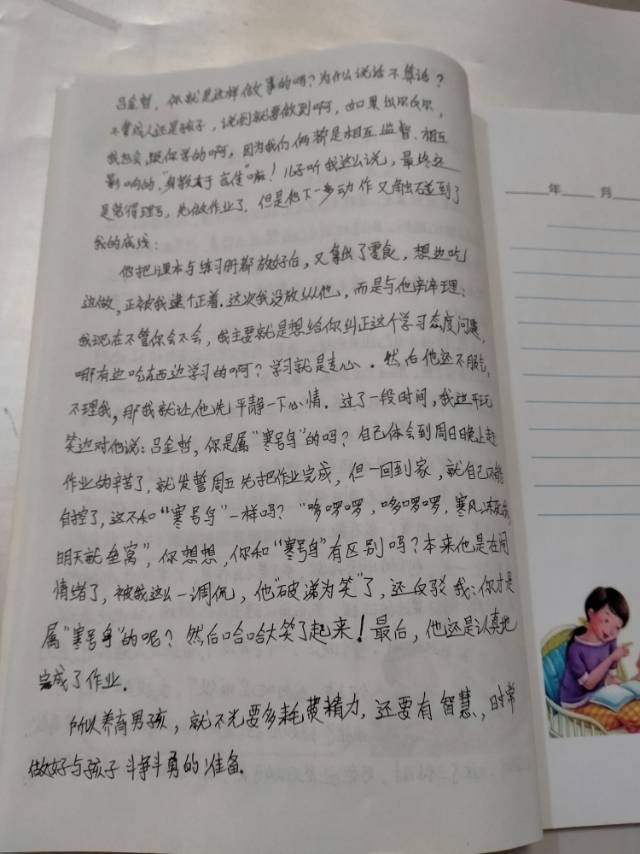 吕金哲，你就是这样做事的吗？为什么说话不算话？
不管成人还是孩子，说到就要做到啊，如果出尔反尔，
我也会跟你学的啊，因为我们俩都是相互监督、相互
影响的，"身教本于言传"嘛！儿子听我这么说，最终还
是觉得理亏，先做作业了，但是他下一步动作又触碰到了
我的底线：
他把课本与练习册都放好后，又拿出了零食，想边吃
边做，正被我逮个正着。这次我没放纵他，而是与他旁牵理：
我现在不管你会不会，我主要就是想给你纠正这个学习态度问题，
哪有边吃东西边学习的啊？学习就是走心。然后他还不服气，
不理我，那我就让他先平静一下心情。过了一段时间，我边开玩
笑边对他说：吕金哲，你是属"寒号鸟"的吗？自己体会到周日晚上赶
作业的辛苦了，就发誓周五先把作业完成，但一回到家，就自己不能
自控了，这不和"寒号鸟"一样吗？"哆啰啰，哆啰啰，寒风冻死我，
明天就垒窝"，你想想，你和"寒号鸟"有区别吗？本来他是在闹
情绪了，被我这么一调侃，他"破涕为笑"了，还反驳我：你才是
属"寒号鸟"的呢？然后哈哈大笑了起来！最后，他还是认真地
完成了作业。
所以养育男孩，就不光要多耗费精力，还要有智慧，时常
做好与孩子斗争斗勇的准备。
年 月